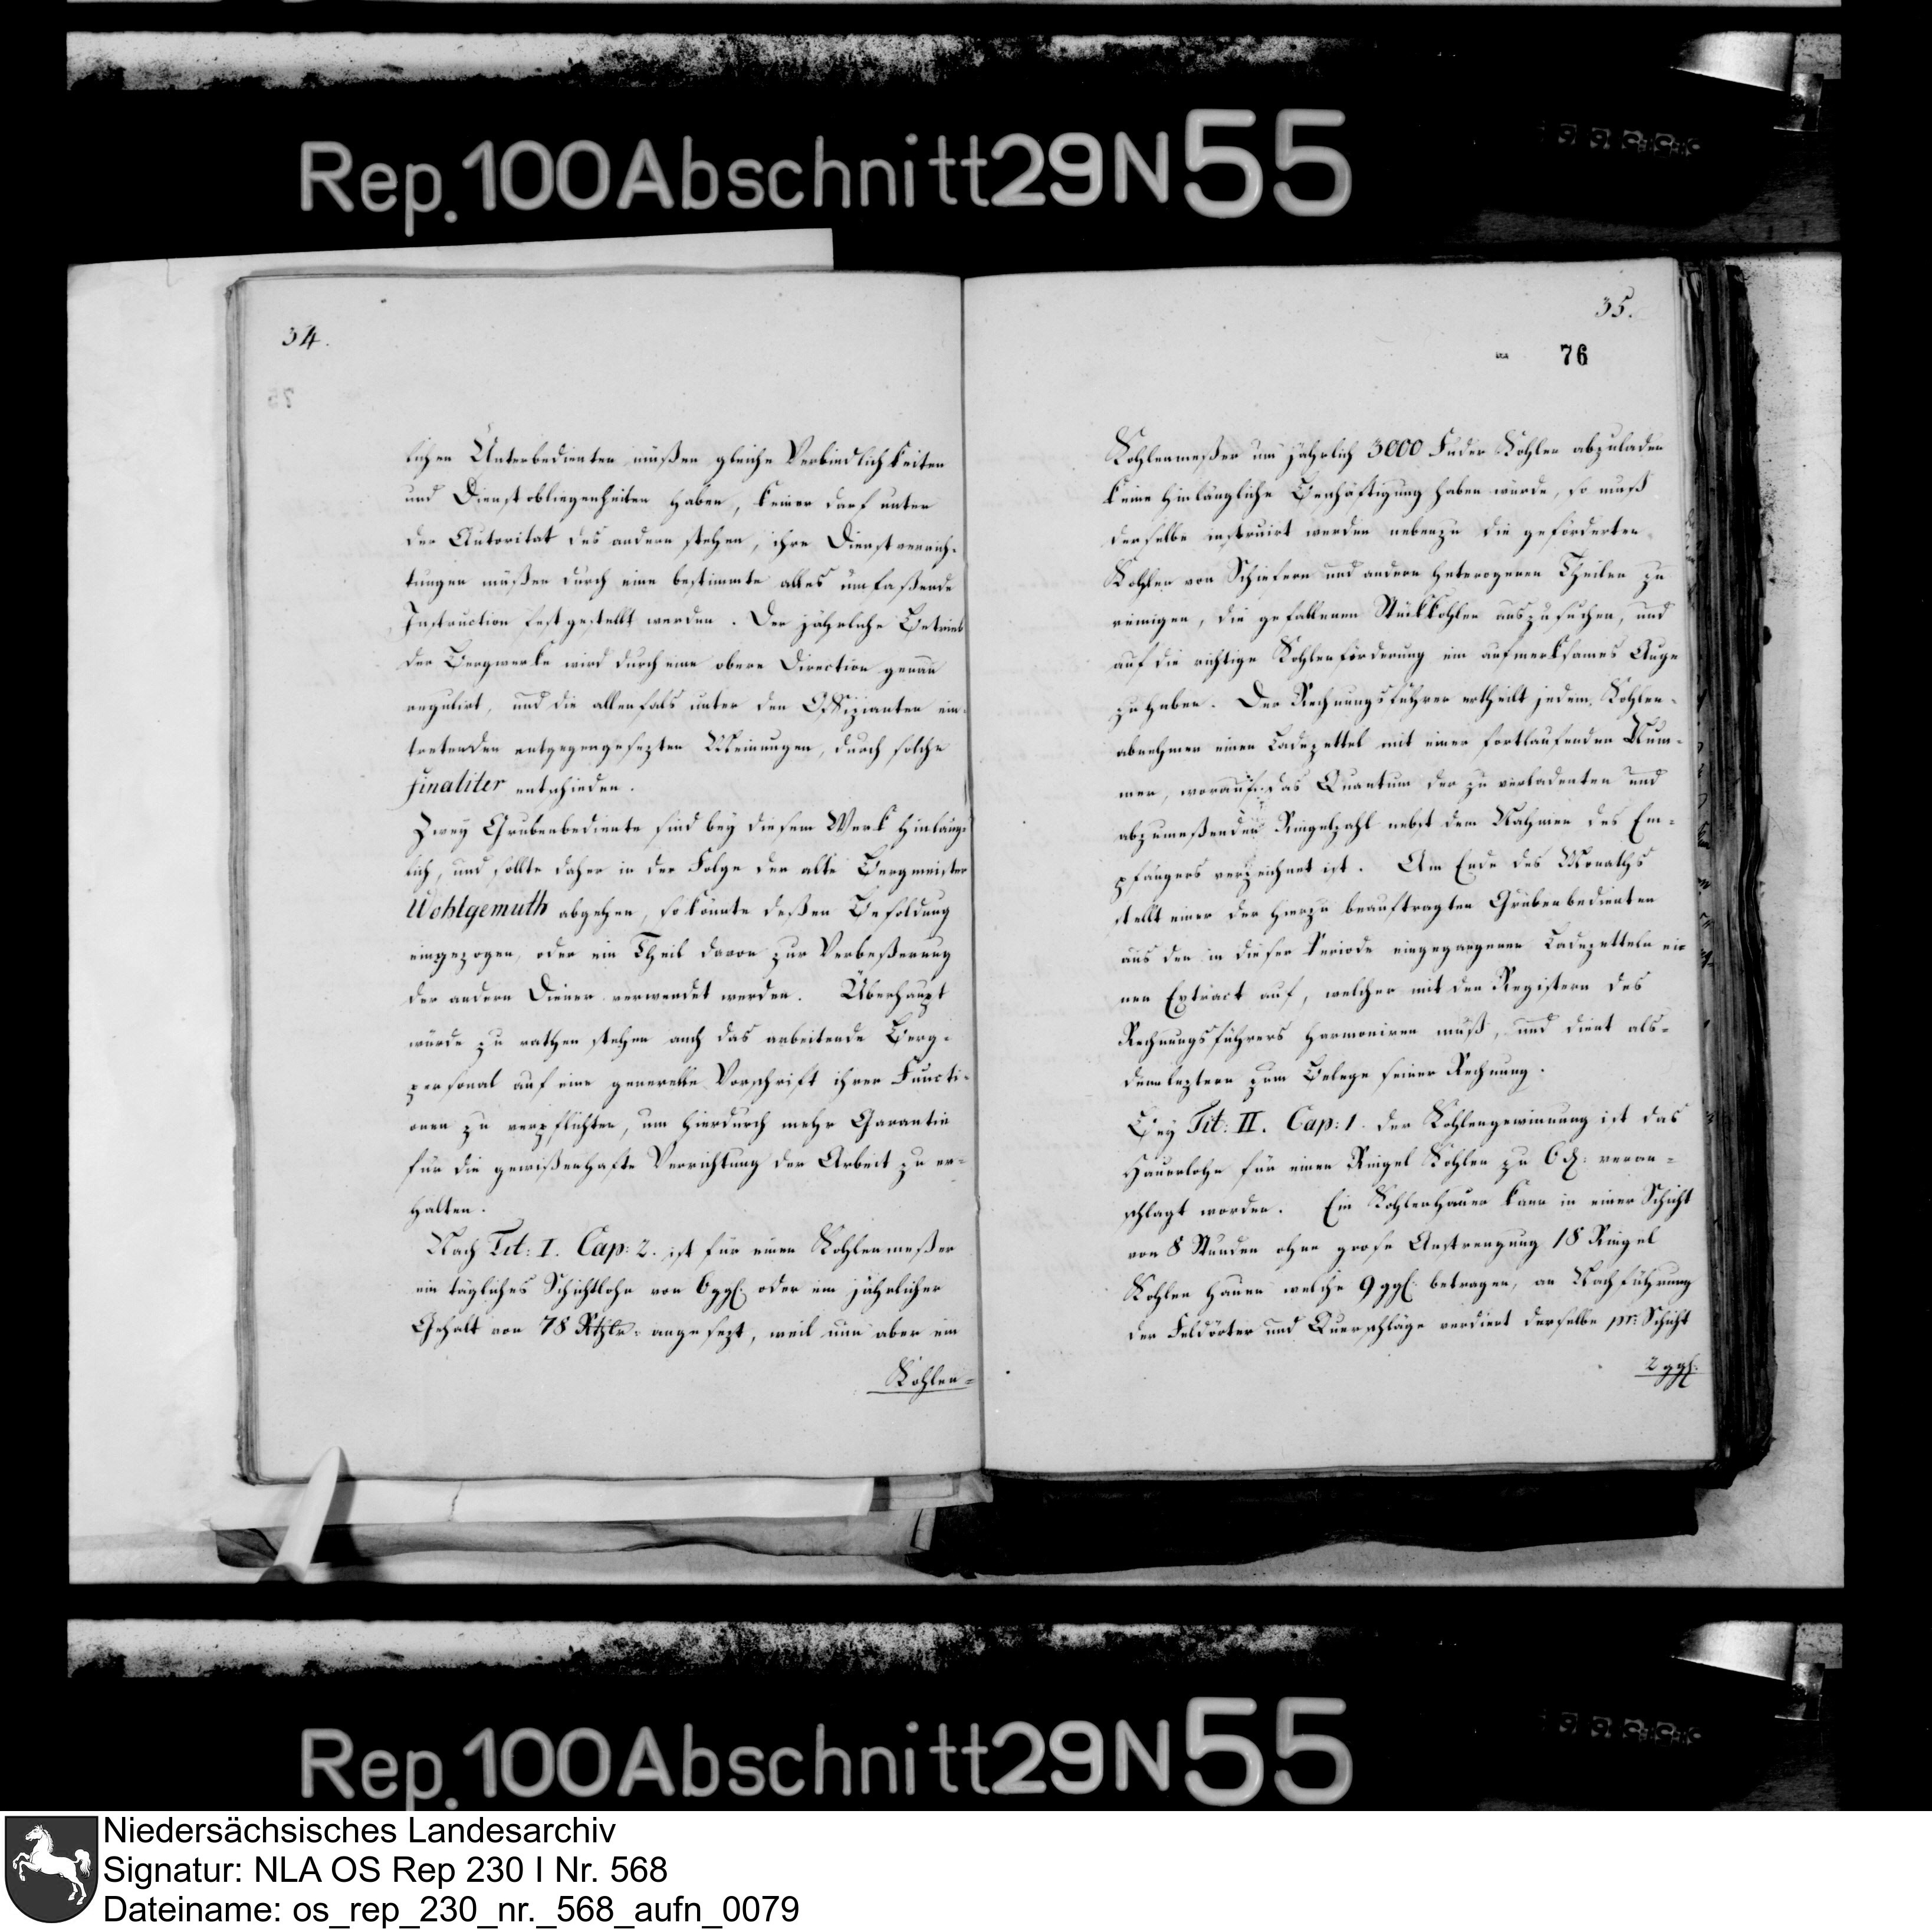 Rep. 100 Abschnitt 29 N 55
34.
lichen Unterbedienten müßen gleiche Verbindlichkeiten
und Dienstobliegenheiten haben, keiner darf unter
der Autoritat des andern stehen, ihre Dienstverrich-
tungen müßen durch eine bestimmte alles umfaßende
Instruction festgestellt werden. Der jährliche Betrieb
der Bergwerke wird durch eine obere Direction genau
regulirt, und die allenfals unter den Offizianten ein-
tretenden entgegengesezten Meinungen, durch solche
finaliter entschieden.
Zwey Grubenbediente sind bey diesem Werk hinläng-
lich, und sollte daher in der Folge der alte Bergmeister
Wohlgemuth abgehen, so könnte deßen Besoldung
eingezogen, oder ein Theil davon zur Verbeßerung
der andern Diener verwendet werden. Überhaupt
würde zu rathen stehen auch das arbeitende Berg-
personal auf eine generelle Vorschrift ihrer Functi-
onen zu verpflichten, um hierdurch mehr Garantie
für die gewißenhafte Verrichtung der Arbeit zu er-
halten.
Nach Tit: I. Cap: 2. ist für einen Kohlenmeßer
ein tägliches Schichtlohn von 6 ggl. oder ein jährlicher
Gehalt von 78 Rthlr. angesezt, weil nun aber ein
Kohlen-
35.
76
Kohlenmeßer um jährlich 3000 Fuder Kohlen abzuladen
keine hinlängliche Beschäftigung haben würde, so muß
derselbe instruirt werden nebenzu die geförderten
Kohlen von Schiefern und andern heterogenen Theilen zu
reinigen, die gefallenen Stückkohlen auszusuchen, und
auf die richtige Kohlenförderung ein aufmerksames Auge
zu haben. Der Rechnungsführer ertheilt jedem Kohlen-
abnehmer einen Ladezettel mit einer fortlaufenden Num-
mer, worauf das Quantum der zu verladenten und
abzumeßenden Ringelzahl nebst dem Nahmen des Em-
pfängers verzeichnet ist. Am Ende des Monaths
stellt einer der hierzu beauftragten Grubenbedienten
aus den in dieser Periode eingegangenen Ladezetteln ei-
nen Extract auf, welcher mit den Registern des
Rechnungsführers harmoniren muß, und dient als-
denn leztern zum Belege seiner Rechnung.
Bey Tit: II. Cap: 1. der Kohlengewinnung ist das
Hauerlohn für einen Ringel Kohlen zu 6 d: veran-
schlagt worden. Ein Kohlenhauer kann in einer Schicht
von 8 Stunden ohne grose Anstrengung 18 Ringel
Kohlen hauen welche 9 ggl. betragen, an Nachführung
der Feldörter und Querschläge verdient derselbe pr: Schicht
2 ggl.
Rep. 100 Abschnitt 29 N 55
Niedersächsisches Landesarchiv
Signatur: NLA OS Rep 230 I Nr. 568
Dateiname: os_rep_230_nr._568_aufn_0079